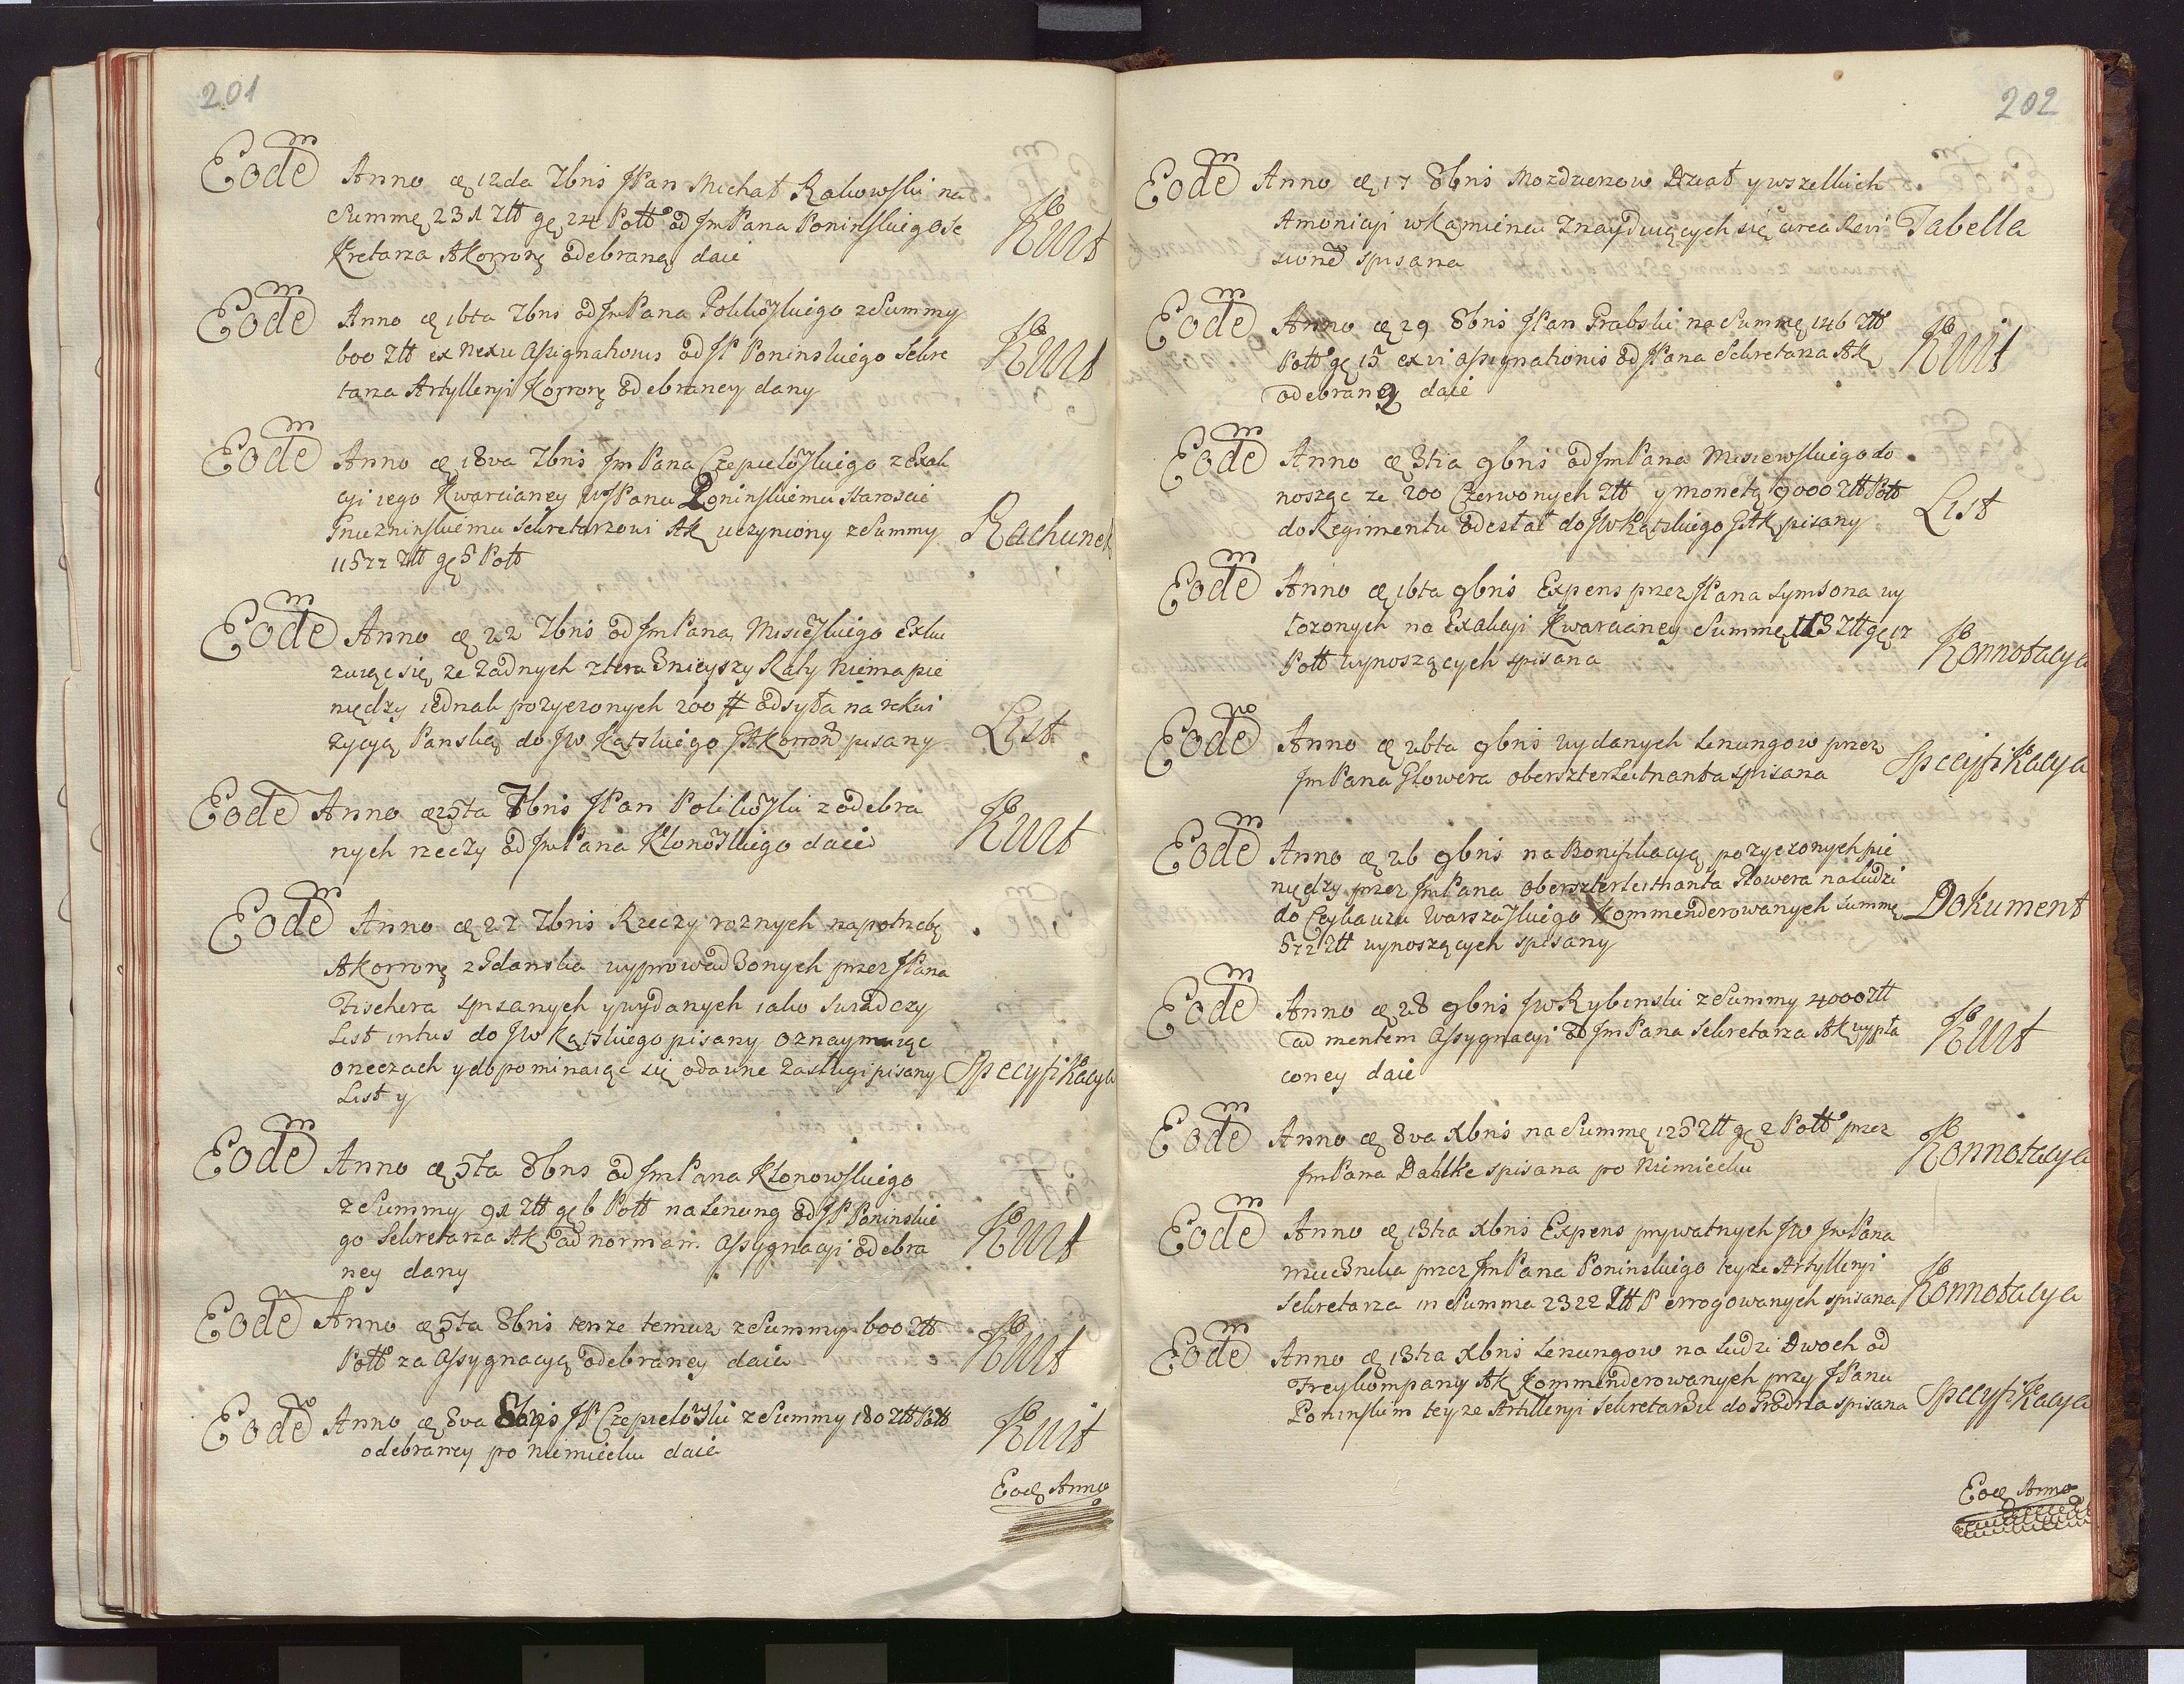 201
Eodem Anno æ 12da 7bris JPan Michał Rakowski na
Summę 231 Ztt gę 24 Poll od JmPana Poninskiego Se
kretarza AKorronę odebraną daie
Kwit
Eodem Anno æ 16ta 7bris od JmPana Polikowskiego z Summy
600 Ztt ex nexu Assignationis od JP Poninskiego Sekre
tarza Artyllerji Korronę odebraney dany
Kwit
Eodem Anno æ 18va 7bris JmPana Czepielowskiego z Exak
cyi iego Kwarcianey WJPanu Poninskiemu Staroscie
Gniezninskiemu Sekretarzowi AK uczyniony z Summy
11522 Ztt gę 5 Poll
Rachunek
Eodem Anno æ 22 7bris od JmPana Misiewskiego Exku
zuiąc się, ze zadnych z teraznieyszy Raty niema pie
niędzy iednak pozyczonych 200 # odsyła na rekwi
zycyą Panską do JW Kątskiego GAKorron pisany
List
Eodem Anno æ 25ta 7bris JPan Polikowski z odebra
nych rzeczy od JmPana Klonowskiego daie
Kwit
Eodem Anno æ 27 7bris Rzeczy roznych na potrzebę
AKorronę z Gdanska wyprowadzonych przez JPana
Fischera spisanych y wydanych iako swiadczy
List intus do JW Kątskiego pisany oznaymuiąc
o rzeczach y dopominaiąc się o dawne Zasługi pisany
List y
Specyfikacya
Eodem Anno æ 5ta 8bris od JmPana Klonowskiego
z Summy 91 Ztt gę 6 Poll na Lenung od JP Poninskie
go Sekretarza AK, ad normam Assygnacyi odebra
ney dany
Kwit
Eodem Anno æ 5ta 8bris tenze temuz z Summy 600 Ztt
Poll za Assygnacyą odebraney daie
Kwit
Eodem Anno æ 8va 8bris JP Czepielowski z Summy 180 Ztt Poll
odebraney po niemiecku daie
Kwit
Eođ Anno
202
Eodem Anno æ 17 8bris Mozdzerzow Dział y wszelkich
Amonicyi w Kamiencu Znayduiących się circa Revi
sionem spisana
Tabella
Eodem Anno æ 29 8bris JPan Grabski na Summę 146 Ztt
Poll gę 15 ex vi Assignationis od JPana Sekretarza AK
odebraną daie
Kwit
Eodem Anno æ 3tia 9bris od JmPana Misiewskiego do
nosząc ze 200 Czerwonych Ztt y monetą 9000 Ztt Poll
do Regimentu odesłał do JW Kątskiego GAK pisany
List
Eodem Anno æ 16ta 9bris Expens przez JPana Symsona wy
łozonych na Exakcyi Kwarcianey Summę 113 Ztt gę 17
Poll wynoszących spisana
Konnotacya
Eodem Anno æ 26ta 9bris wydanych Lenungow przez
JmPana Glowera oberszterleitnanta spisana
Specyfikacya
Eodem Anno æ 26 9bris na Bonifikacyą pozyczonych pie
niędzy przez JmPana oberszterleithanta Glowera na Ludzi
do Ceykauzu Warszawskiego Kommenderowanych Summę
572 Ztt wynoszących spisany
Dokument
Eodem Anno æ 28 9bris JW Rybinski z Summy 4000 Ztt
ad mentem Assygnacyi od JmPana Sekretarza AK wypła
coney daie
Kwit
Eodem Anno æ 8va Xbris na Summę 125 Ztt gę 2 Poll przez
JmPana Dahlke spisana po niemiecku
Konnotacya
Eodem Anno æ 13tia Xbris Expens prywatnych JW JmPana
miecznika przez JmPana Poninskiego teyze Artyllerji
Sekretarza in Summa 2322 Ztt P errogowanych spisana
Konnotacya
Eodem Anno æ 13tia Xbris Lenungow na Ludzi Dwoch od
Freykompany AK Kommenderowanych przy JPanu
Poninskim teyze Artillerji Sekretarzu do Grodna spisana
Specyfikacya
Eođ Anno